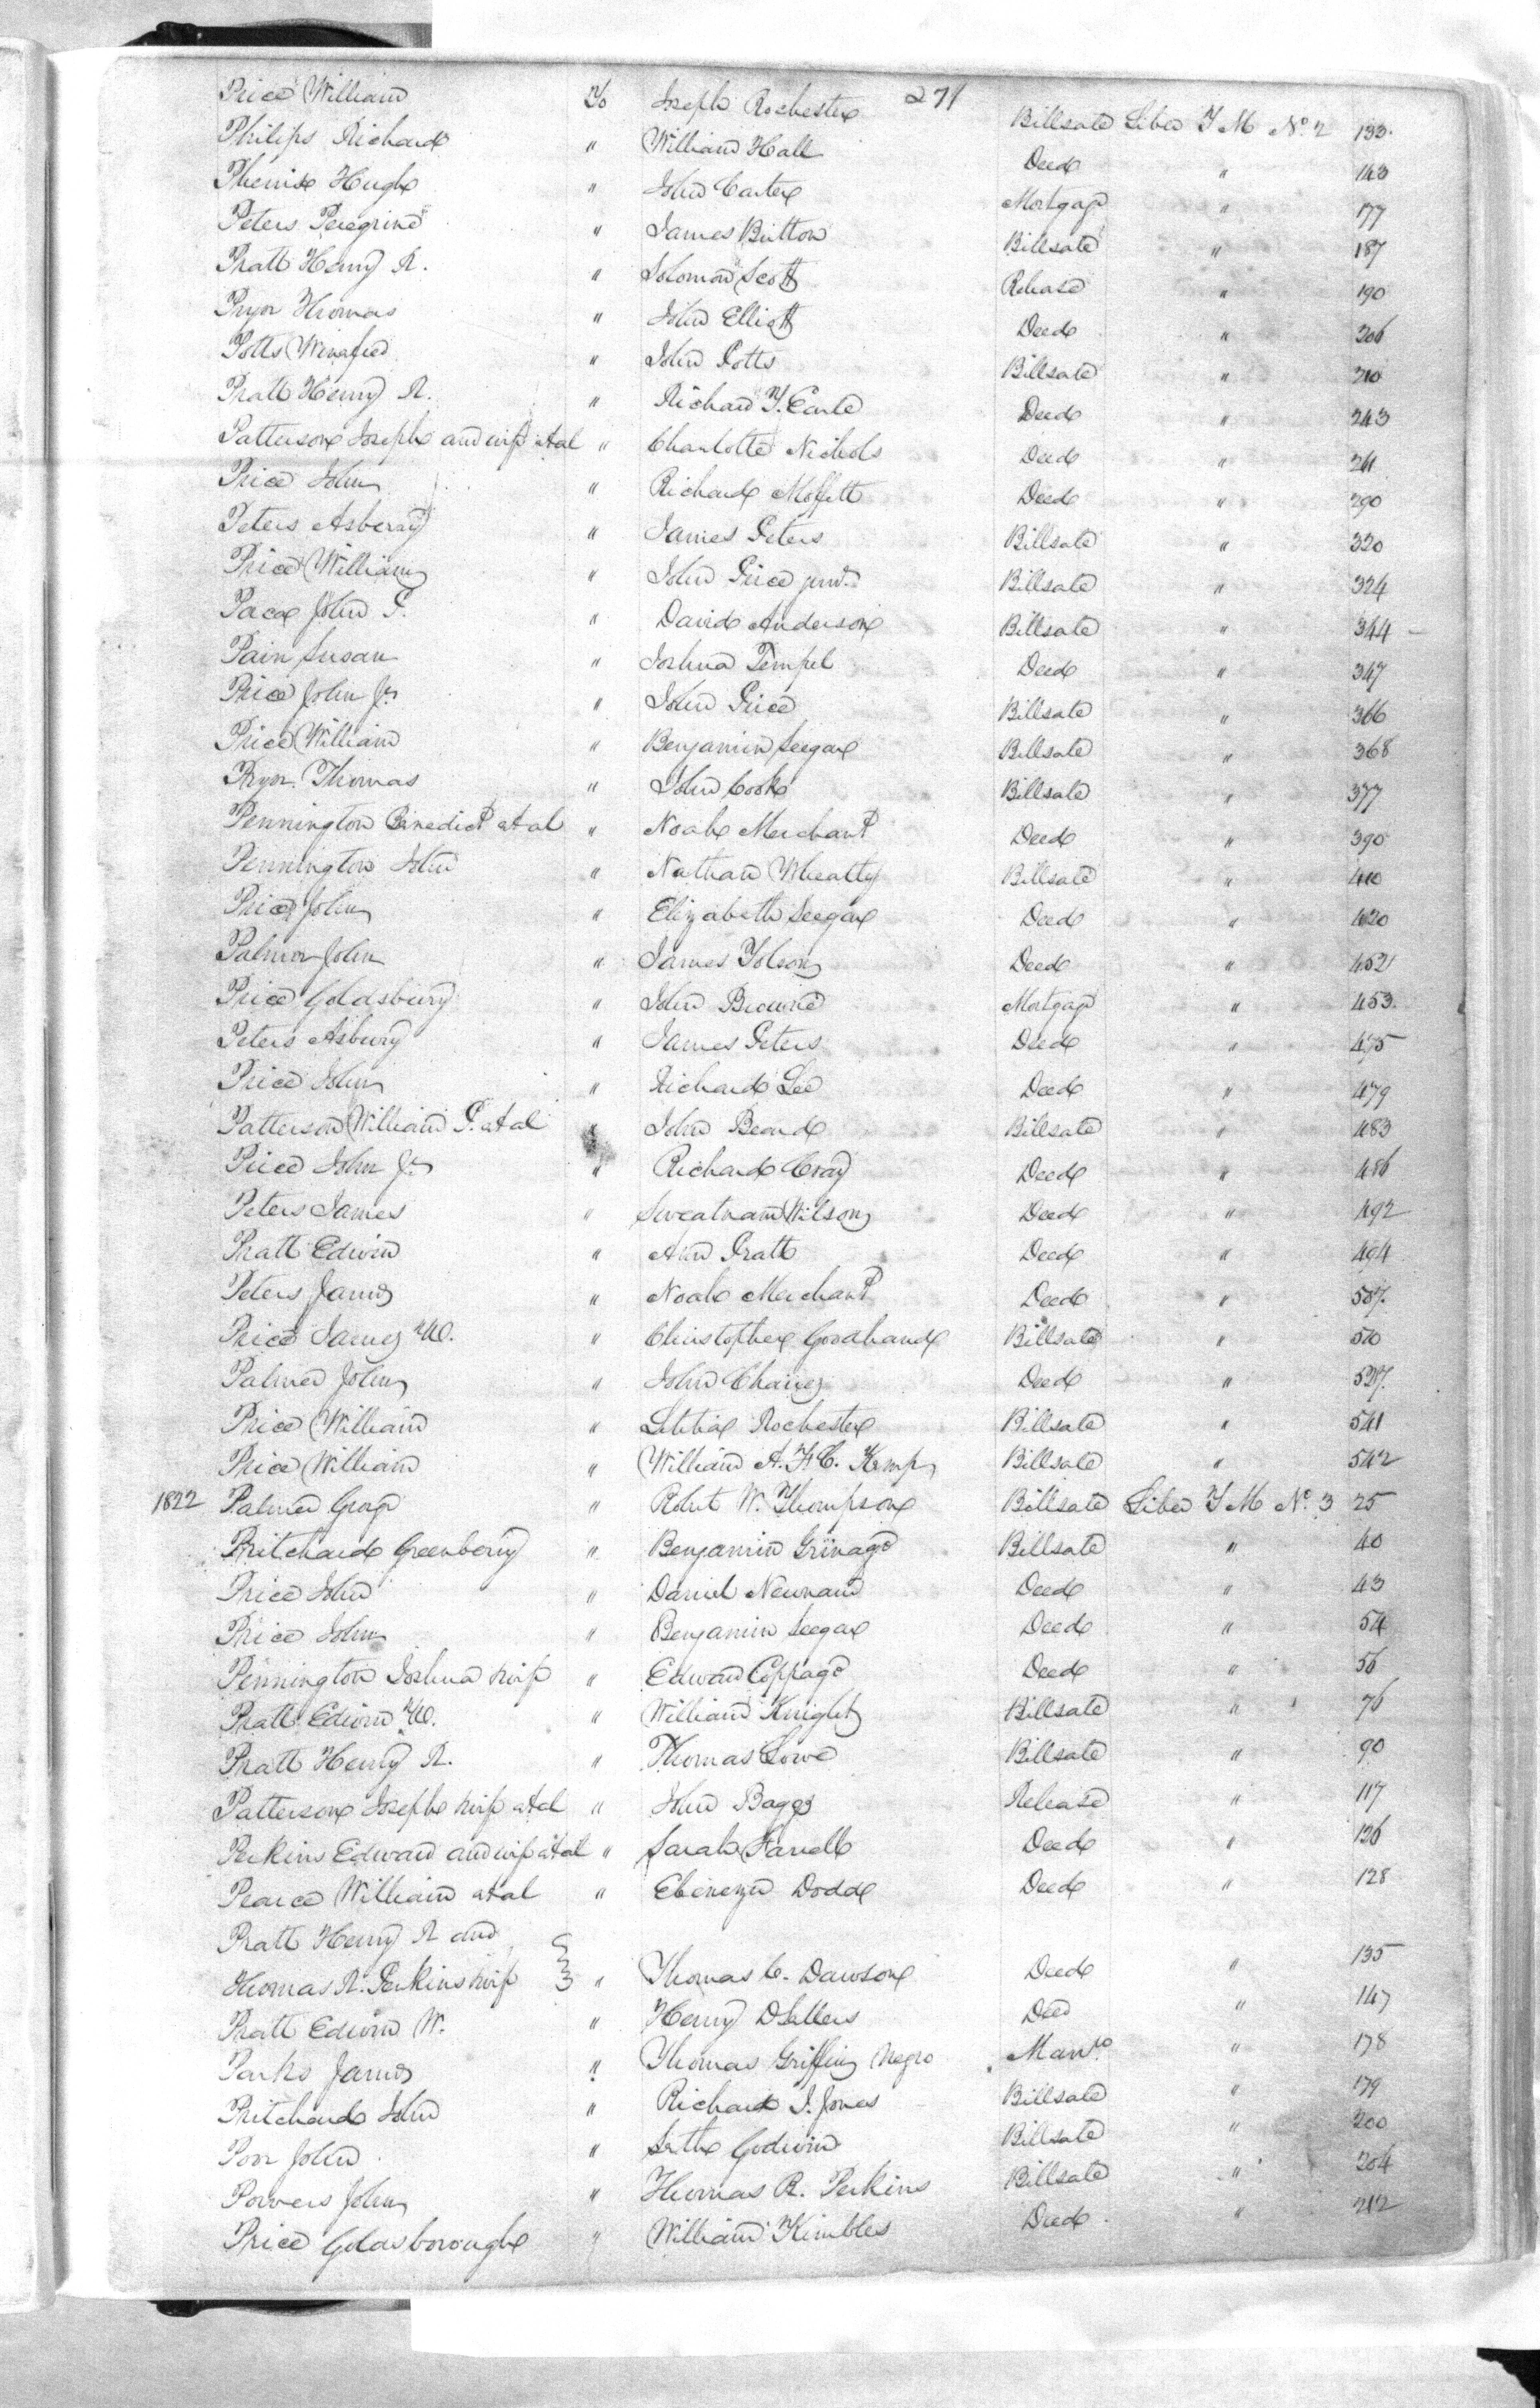 271
Price William To Joseph Rochester Billsale Liber T M No. 2 133.
Philips Richard " William Hall Deed " 143
Phenix Hugh " John Carter Mortgage " 177
Peters Peregrine " James Britton Billsale " 187
Pratt Henry R. " Solomon Scott Release " 190
Pryor Thomas " John Elliott Deed " 206
Potts Winafred " John Potts Billsale " 210
Pratt Henry R. " Richard T. Earle Deed " 243
Patterson Joseph and wife et al " Charlotte Nichols Deed "
Price John " Richard Moffett Deed " 290
Peters Asberry " James Peters Billsale " 320
Price William " John Price junr. Billsale " 324
Paca John P. " David Anderson Billsale " 344
Pain Susan " Joshua Tempel Deed " 347
Price John Jr " John Price Billsale " 366
Price William " Benjamin Seegar Billsale " 368
Pryor Thomas " John Cook Billsale " 377
Pennington Benedict et al " Noah Merchant Deed " 390
Pennington John " Nathan Wheatly Billsale " 410
Price John " Elizabeth Seegar Deed " 420
Palmer John " James Tolson Deed " 452
Price Goldsbury " John Browne Mortgage " 453.
Peters Asbury " James Peters Deed " 475
Price John " Richard Lee Deed " 479
Patterson William P. et al " John Beard Billsale " 483
Price John Jr " Richard Cray Deed " 486
Peters James " Sweatnam Wilson Deed " 492
Pratt Edwin " Ann Pratt Deed " 494
Peters James " Noah Merchant Deed " 507.
Price James W. " Christopher Goodhand Billsale " 510
Palmer John " John Chaires Deed " 527.
Price William " Letitia Rochester Billsale " 541
Price William " William A. F. C. Kemp Billsale " 542
1822 Palmer George " Robert W. Thompson Billsale Liber T M No. 3 25
Pritchard Greenberry " Benjamin Grinage Billsale " 40
Price John " Daniel Newnam Deed " 43
Price John " Benjamin Seegar Deed " 54
Pennington Joshua & wife " Edward Coppage Deed " 56
Pratt Edwin W. " William Knight Billsale " 76
Pratt Henry R. " Thomas Lowe Billsale " 90
Patterson Joseph & wife et al " John Baggs Release " 117
Perkins Edward and wife et al " Sarah Farrell Deed " 126
Pearce William et al " Ebenezer Dodd Deed " 128
Pratt Henry R and
Thomas R. Perkins & wife } " Thomas C. Dawson Deed " 135
Pratt Edwin W. " Henry D Sellers Deed " 147
Parks James " Thomas Griffin Negro Man.o " 178
Pritchard John " Richard I. Jones Billsale " 179
Poor John " Seth Godwin Billsale " 200
Powers John " Thomas R. Perkins Billsale " 204
Price Goldsborough " William Kimbles Deed " 212